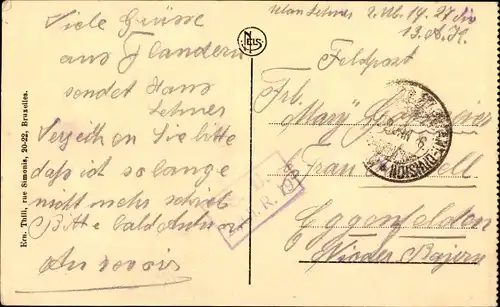 Viele Grüsse
aus Flandern
sendet Hans
Lehner
Verzeihen Sie bitte
daß ich so lange
nicht mehr schrieb
Bitte bald Antwort
Au revoir
Ern. Thill, rue Simonis, 20-22, Bruxelles.
NELS
Ulan Lehner 2. Ul. 19. 27 Div
13. A. K.
Feldpost
Frl.
Mary
Frau
Eggenfelden
Nieder Bayern